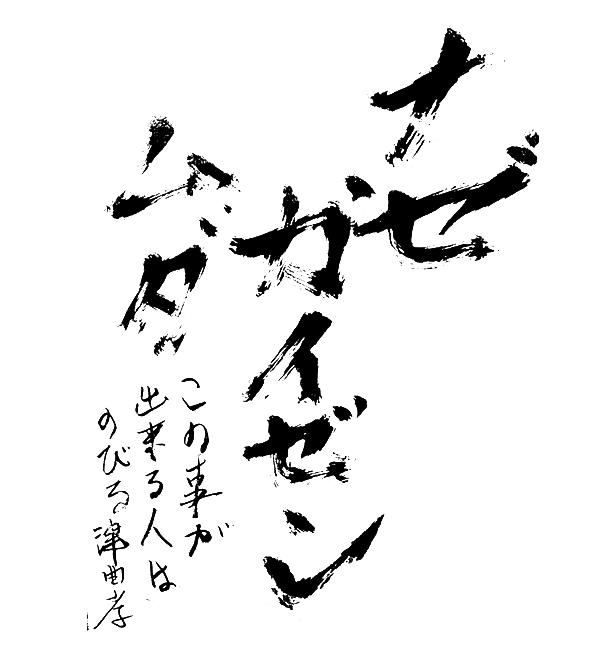 ナゼ
カイゼン
ムダ
この事が
出来る人は
のびる 津曲孝